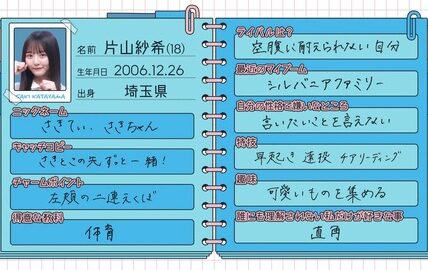 SAKI KATAYAMA
名前 片山紗希(18)
生年月日 2006.12.26
出身 埼玉県
ニックネーム
さきてぃ、さきちゃん
キャッチコピー
さきとこの先ずっと一緒!
チャームポイント
左頬の二連えくぼ
得意な教科
体育
ライバルは?
空腹に耐えられない自分
最近のマイブーム
シルバニアファミリー
自分の性格で嫌いなところ
言いたいことを言えない
特技
早起き 遠投 チアリーディング
趣味
可愛いものを集める
誰にも理解されない私だけが好きな事
直角